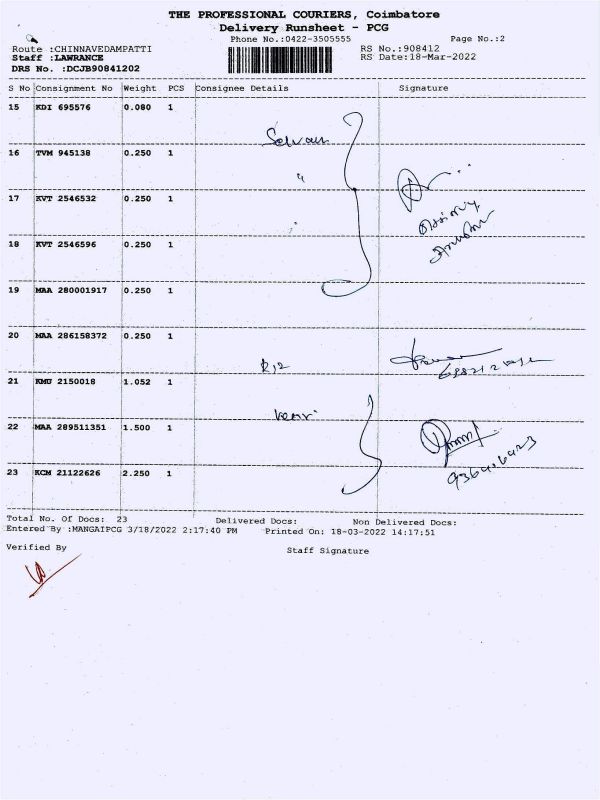 THE PROFESSIONAL COURIERS, Coimbatore
Delivery Runsheet - PCG
Phone No.:0422-3505555 Page No.:2
Route :CHINNAVEDAMPATTI RS No.:908412
Staff :LAWRANCE RS Date:18-Mar-2022
DRS No. :DCJB90841202
S No Consignment No Weight PCS Consignee Details Signature
15 KDI 695576 0.080 1
Selvam
16 TVM 945138 0.250 1
17 KVT 2546532 0.250 1
18 KVT 2546596 0.250 1
19 MAA 280001917 0.250 1
20 MAA 286158372 0.250 1
21 KMU 2150018 1.052 1
22 MAA 289511351 1.500 1
23 KCM 21122626 2.250 1
Total No. Of Docs: 23 Delivered Docs: Non Delivered Docs:
Entered By :MANGAIPCG 3/18/2022 2:17:40 PM Printed On: 18-03-2022 14:17:51
Verified By Staff Signature